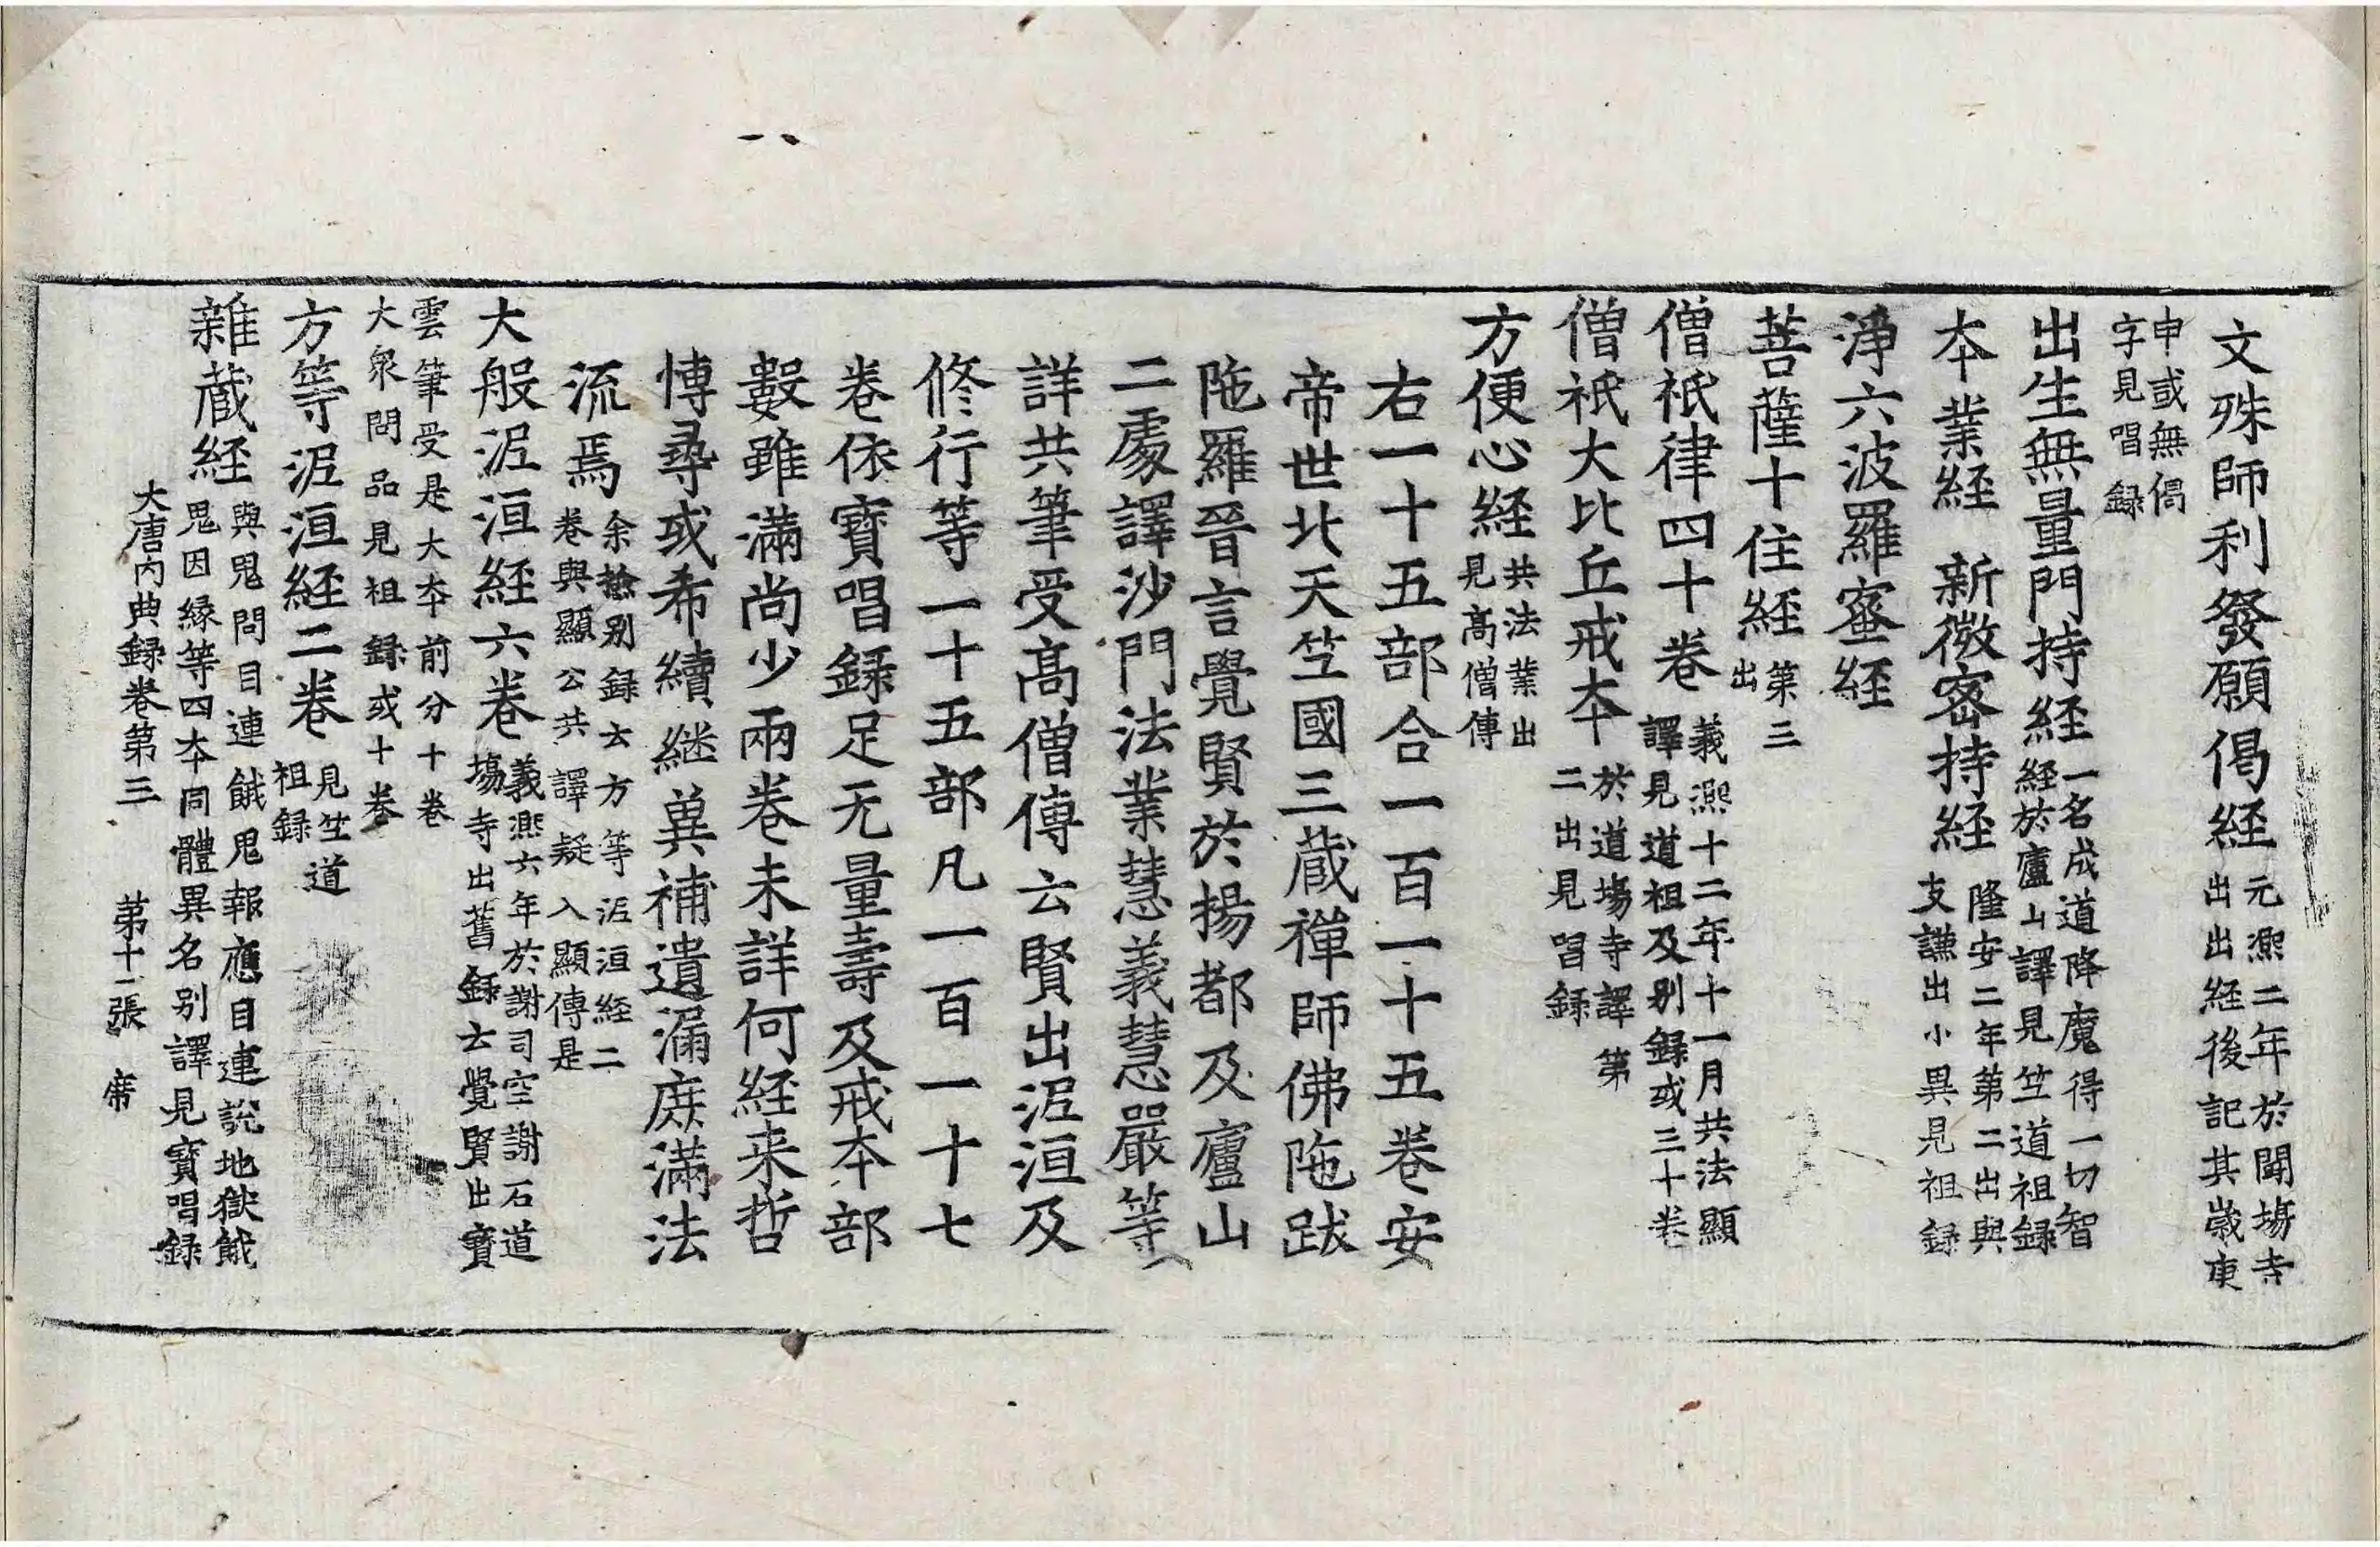 文殊師利發願偈経
元熈二年於閗塲寺
出出経後記其嵗庚
申或無偈
字見唱録
出生無量門持経
一名成道降魔得一切智
経於廬山譯見竺道祖録
本業経 新微密持経
隆安二年第二出與
支謙出小異見祖録
淨六波羅蜜経
菩薩十住経
第三
出
僧祇律四十卷
義熈十二年十一月共法顯
譯見道祖及别録或三十卷
僧祇大比丘戒本
於道塲寺譯第
二出見唱録
方便心経
共法業出
見髙僧傳
右一十五部合一百一十五卷安
帝世北天竺國三蔵禪師佛陁跋
陁羅晉言覺賢於揚都及廬山
二處譯沙門法業慧義慧嚴等
詳共筆受髙僧傳云賢出泥洹及
修行等一十五部凡一百一十七
卷依寶唱録足无量壽及戒本部
數雖滿尚少兩卷未詳何経来哲
博尋或希續継兾補遺漏庻滿法
流焉
余撿别録云方等泥洹経二
卷與顯公共譯疑入顯傳是
大般泥洹経六卷
義熈六年於謝司空謝石道
塲寺出舊録云覺賢出寶
雲筆受是大本前分十卷
大衆問品見祖録或十卷
方等泥洹経二卷
見竺道
祖録
雜蔵経
與鬼問目連餓鬼報應目連說地獄餓
鬼因縁等四本同體異名别譯見寶唱録
大唐内典録卷第三 第十二張 席